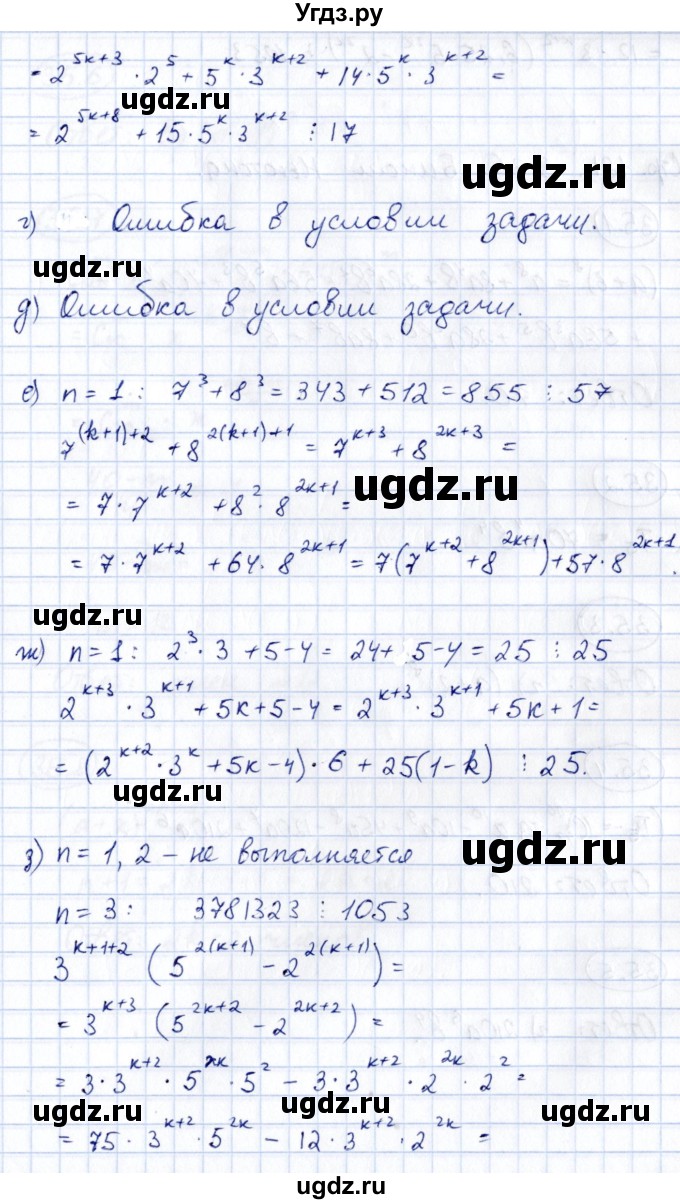 Угдз.ру
- 2^(5k+3) · 2^5 + 5^k · 3^(k+2) + 14 · 5^k · 3^(k+2) =
ugdz.ru
= 2^(5k+8) + 15 · 5^k · 3^(k+2) ⋮ 17
ugdz.ru
г) Ошибка в условии задачи.
ugdz.ru
д) Ошибка в условии задачи.
е) n = 1 : 7^3 + 8^3 = 343 + 512 = 855 ⋮ 57
7^((k+1)+2) + 8^(2(k+1)+1) = 7^(k+3) + 8^(2k+3) =
ugdz.ru
= 7 · 7^(k+2) + 8^2 · 8^(2k+1) =
= 7 · 7^(k+2) + 64 · 8^(2k+1) = 7(7^(k+2) + 8^(2k+1)) + 57 · 8^(2k+1).
ugdz.ru
ж) n = 1 : 2^3 · 3 + 5 - 4 = 24 + 5 - 4 = 25 ⋮ 25
2^(k+3) · 3^(k+1) + 5k + 5 - 4 = 2^(k+3) · 3^(k+1) + 5k + 1 =
= (2^(k+2) · 3^k + 5k - 4) · 6 + 25(1 - k) ⋮ 25.
ugdz.ru
з) n = 1, 2 - не выполняется
ugdz.ru
n = 3 : 3781323 ⋮ 1053
3^(k+1+2) (5^(2(k+1)) - 2^(2(k+1))) =
= 3^(k+3) (5^(2k+2) - 2^(2k+2)) =
= 3 · 3^(k+2) · 5^(2k) · 5^2 - 3 · 3^(k+2) · 2^(2k) · 2^2 =
ugdz.ru ugdz.ru ugdz.ru
= 75 · 3^(k+2) · 5^(2k) - 12 · 3^(k+2) · 2^(2k) =
ugdz.ru